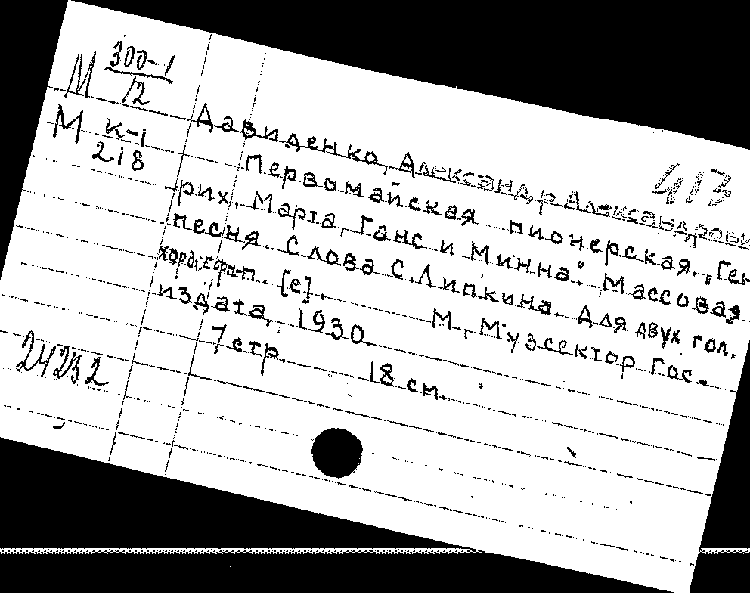 М 300-1/12
М К-1
218
413
Давиденко, Александр Александрови
Первомайская пионерская. „Ген
рих, Марта, Ганс и Минна." Массовая
песня. Слова С. Липкина. Для двух гол.
хора с ф-п. [e].
М., Музсектор Гос.
издата, 1930.
7 стр. 18 см.
24232